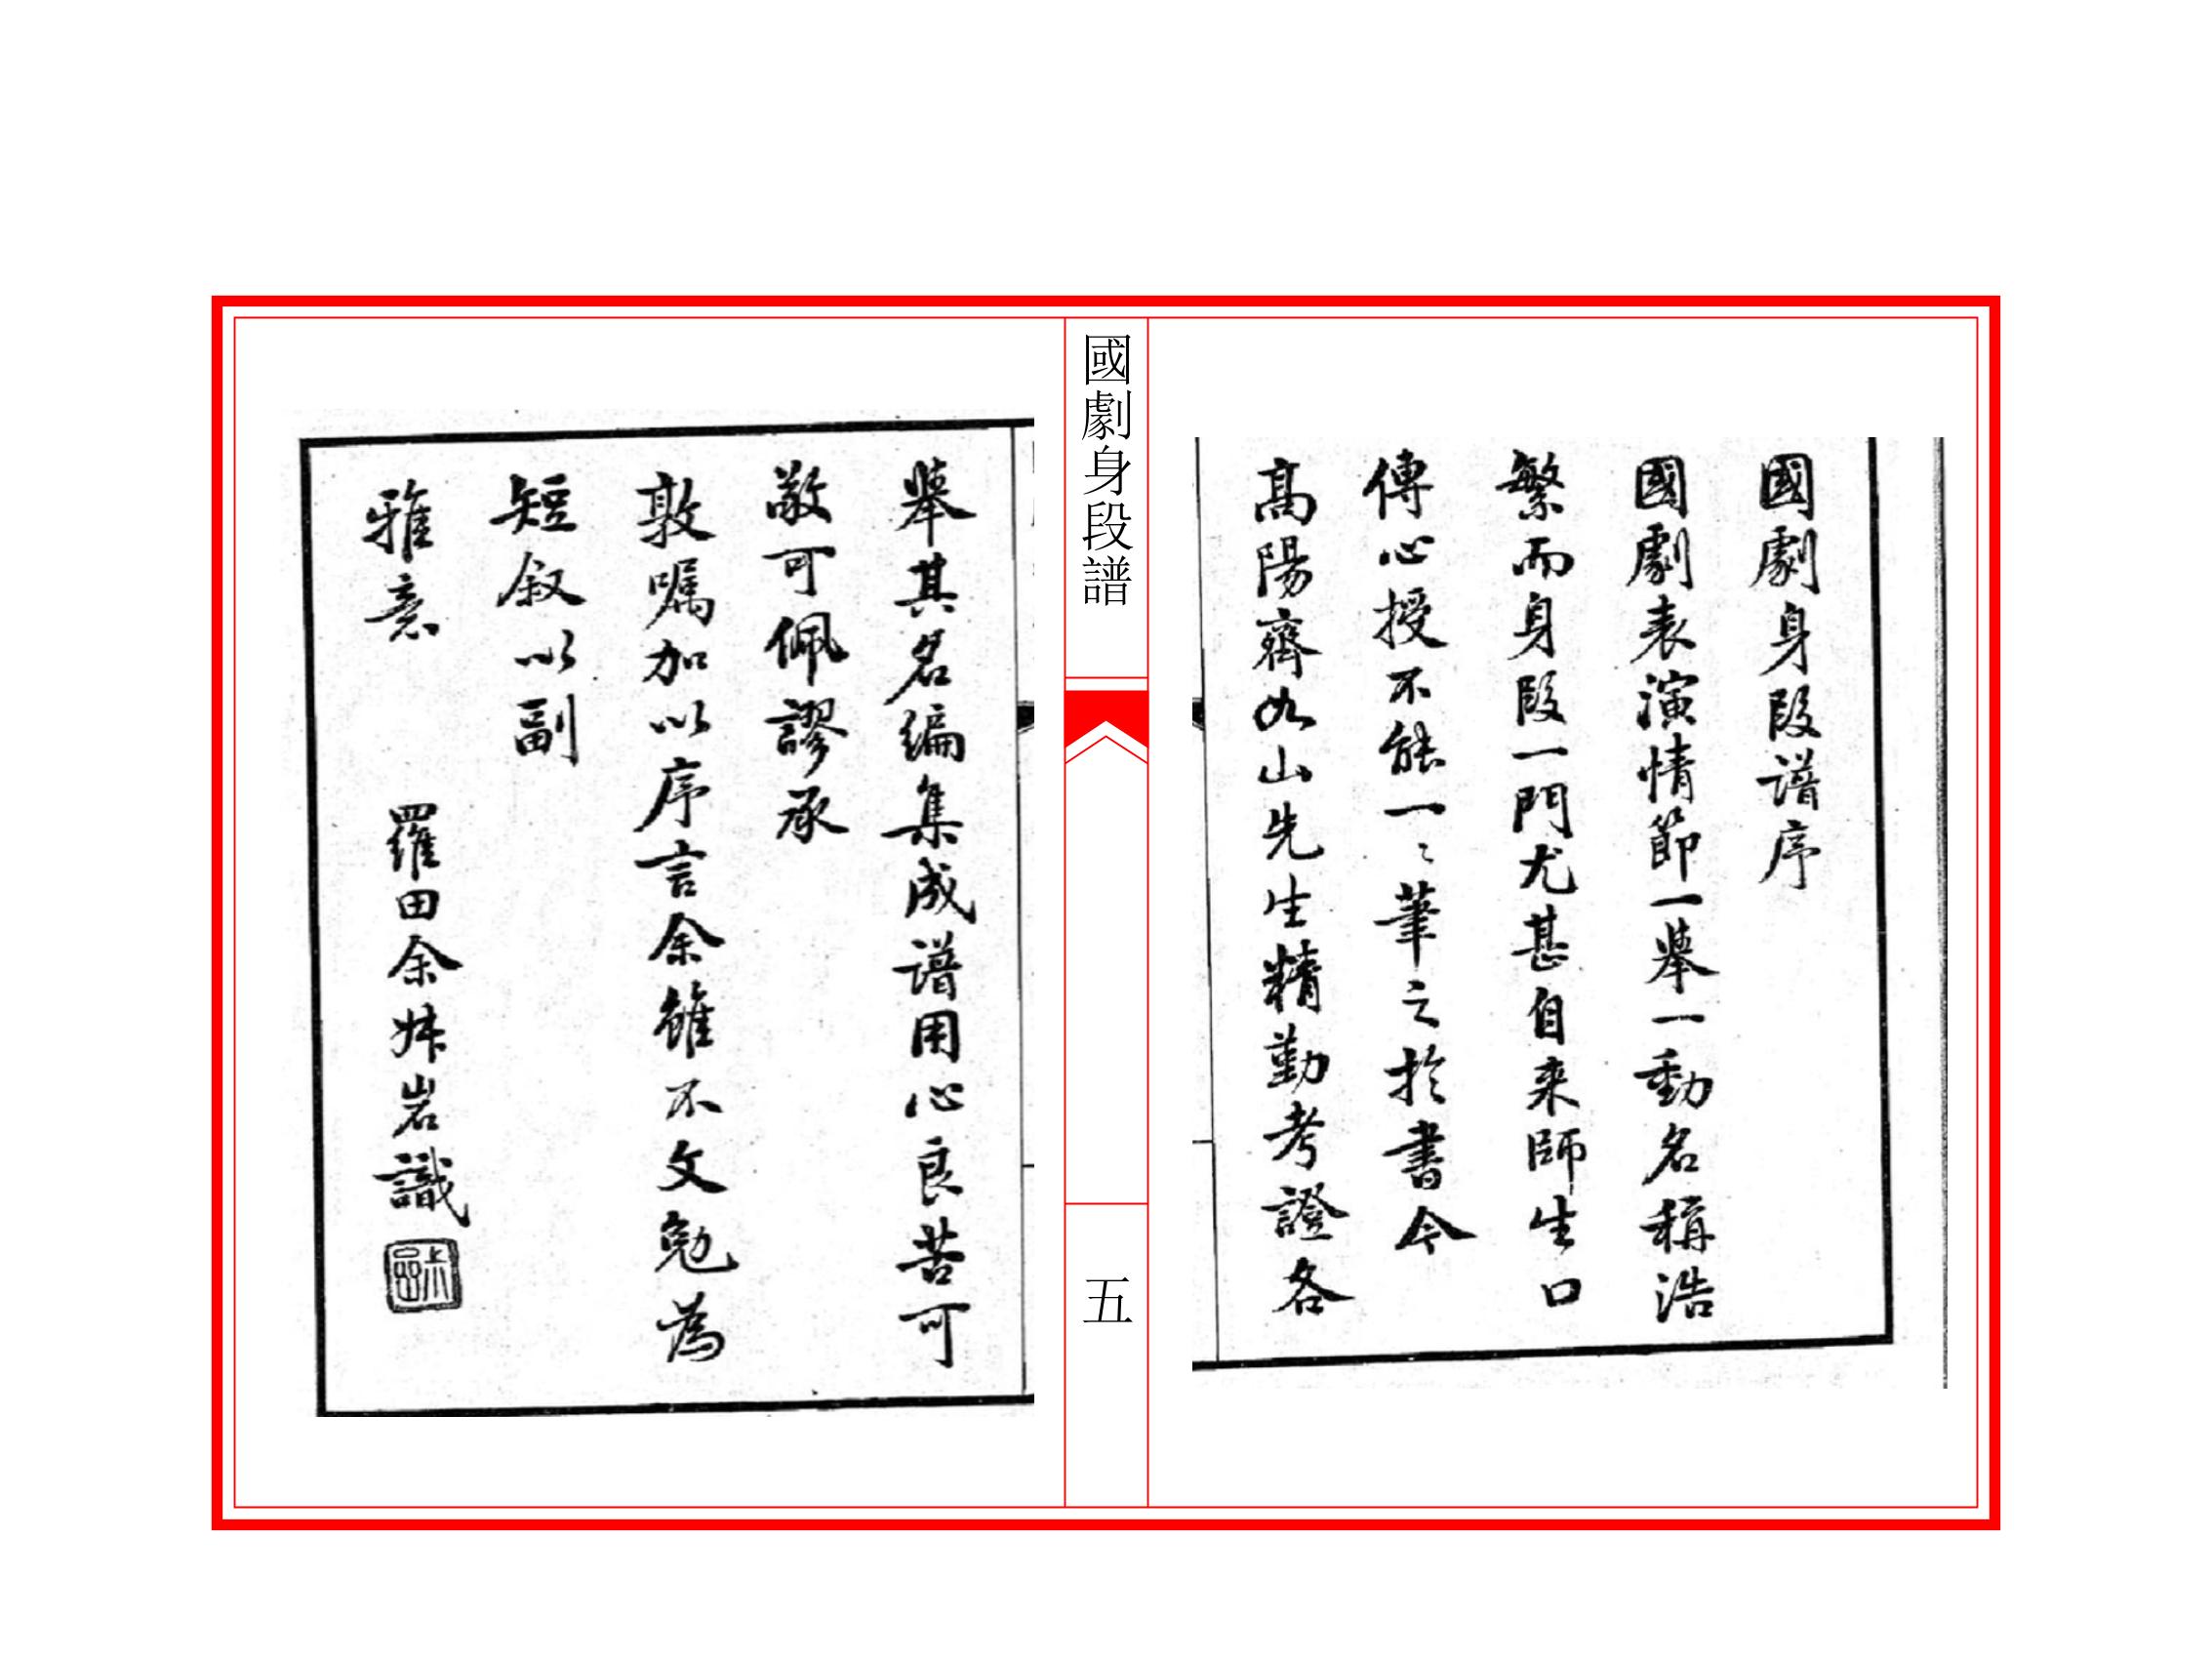 國劇身段譜序
國劇表演情節一舉一動名稱浩
繁而身段一門尤甚自来師生口
傳心授不能一〻筆之於書今
高陽齊如山先生精勤考證各
國劇身段譜
五
舉其名編集成譜用心良苦可
敬可佩謬承
敦嘱加以序言余雖不文勉為
短叙以副
雅意
羅田余叔岩識